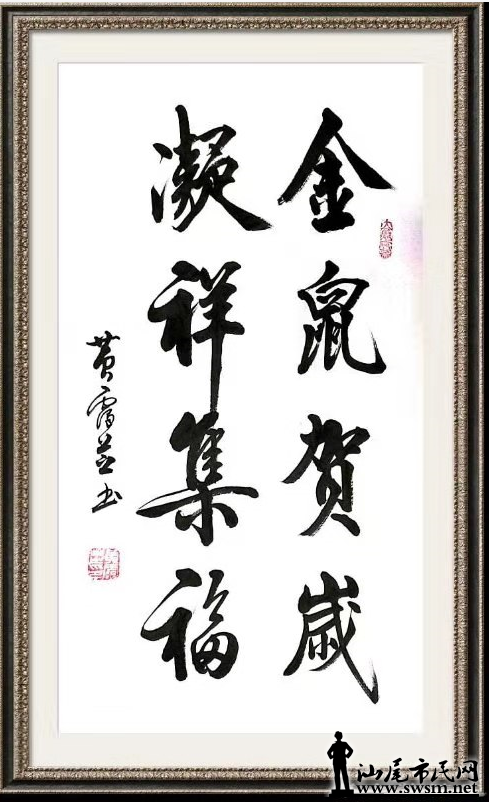 金鼠贺歲
凝祥集福
黄霄芸书
汕尾市民网
www.swsm.net